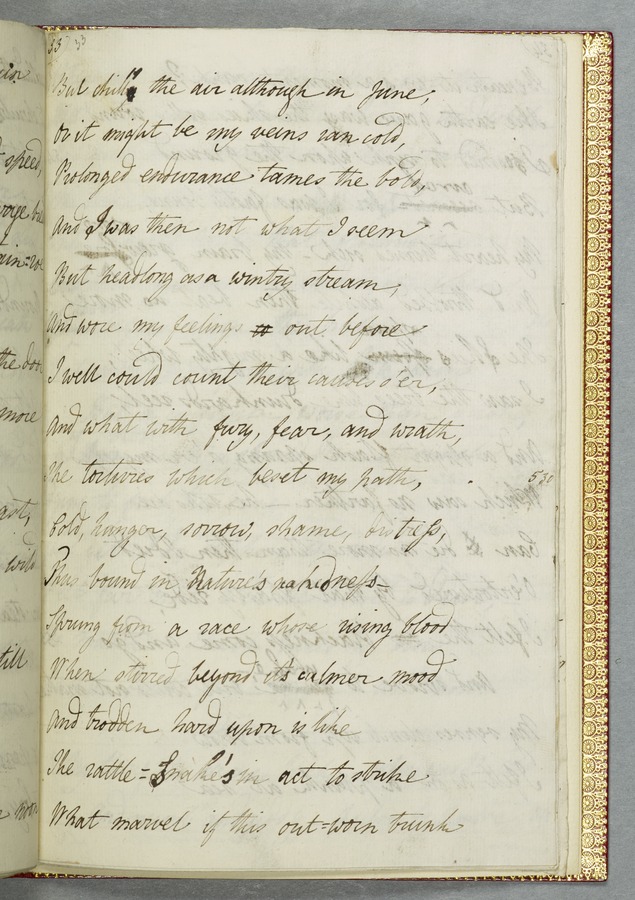 33 33
But chill, the air although in June,
Or it might be my veins ran cold,
Prolonged endurance tames the bold,
And I was then not what I seem
But headlong as a wintry stream,
And wore my feelings out before
I well could count their causes o'er,
And what with fury, fear, and wrath,
The tortures which beset my path, 530
Cold, hunger, sorrow, shame, distress,
Thus bound in Nature's nakedness—
Sprung from a race whose rising blood
When stirred beyond its calmer mood
And trodden hard upon is like
The rattle=Snake's in act to strike
What marvel if this out=worn trunk
speed,
the door
more
till